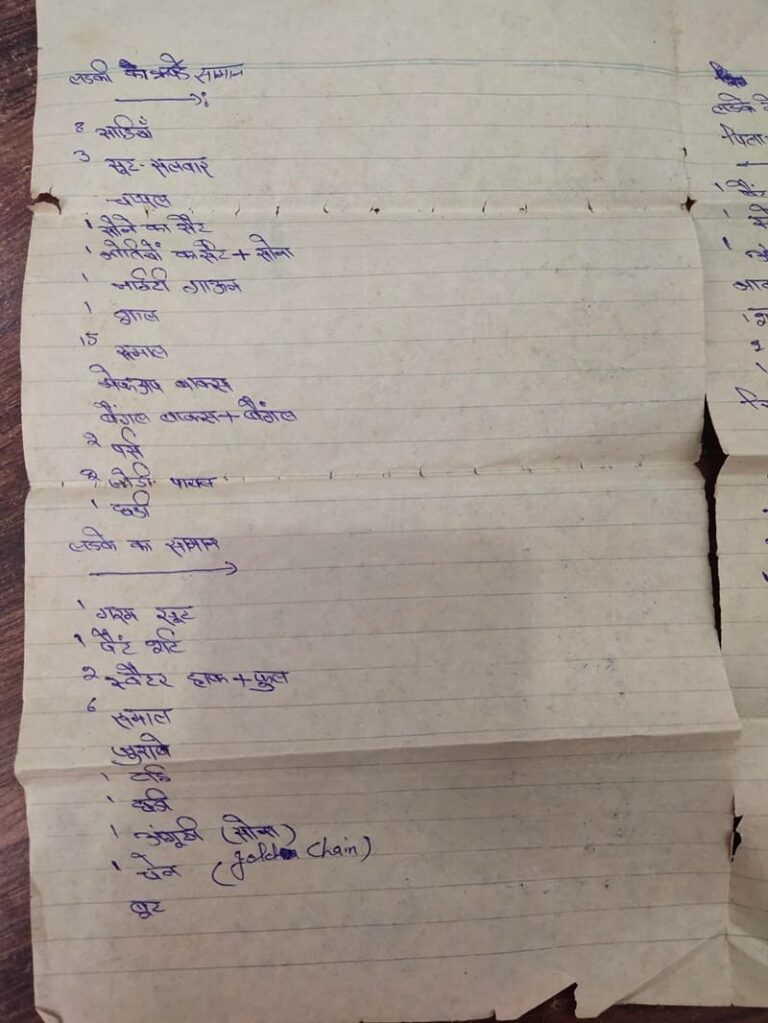 लडकी का कपडे समान
8 साडियाँ
3 सूट-सलवार
चप्पल
1 सोने का सैट
1 मोतियों का सैट + सोना
1 नाईटी गाऊन
1 शाल
15 रुमाल
मेकअप बाक्स
बैंगल बाक्स + बैंगल
2 पर्स
2 जोडी पायल
1 घडी
लडके का सामान
1 गरम सूट
1 पैंट शर्ट
2 स्वैटर हाफ + फुल
6 रुमाल
जुराबे
1 टाई
1 घडी
1 अंगूठी (सोना)
1 चेन (gold Chain)
बूट
लडके
पिता-